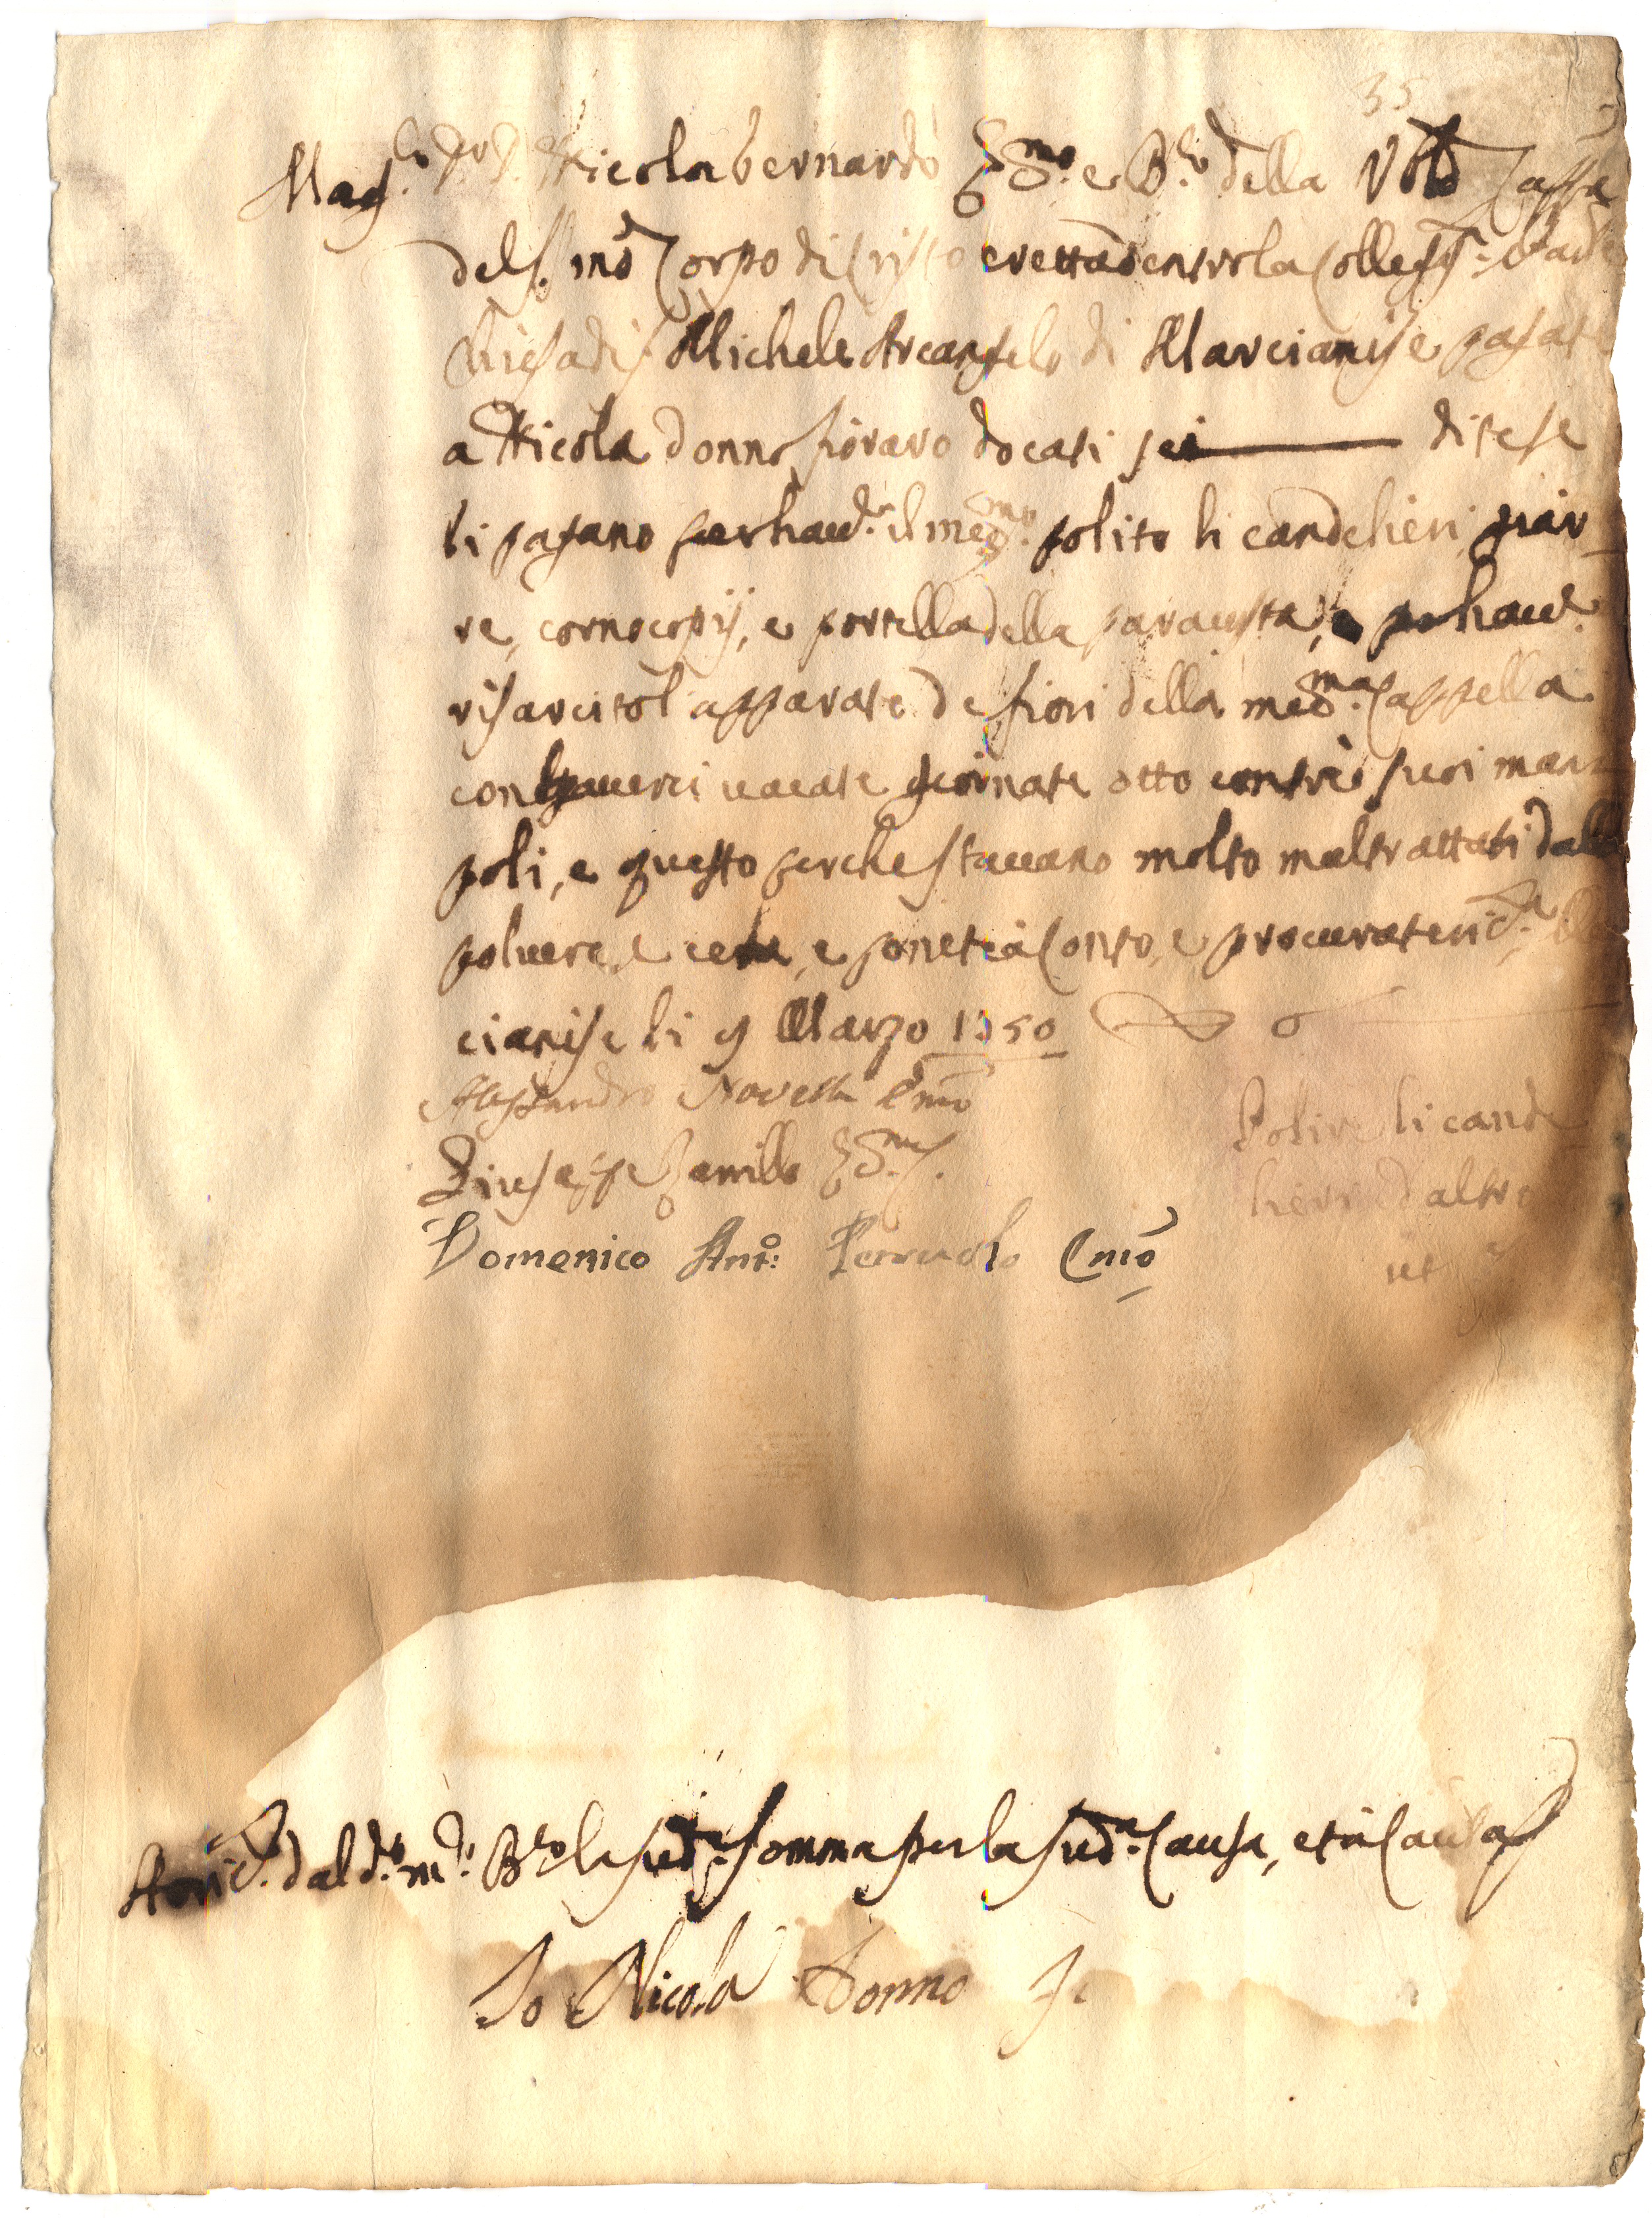 35
Mag.co D.r D. Nicola bernardo Ec.mo e B.ro della Vble Cappe
del S.mo Corpo di Cristo eretta dentro la Colleg.ta Madre
Chiesa di S. Michele Arcangelo di Marcianise pagate
a Nicola donno fioraro docati sei di tese
li pagano per haver il med.mo polito li candelieri, giar-
re, cornocopij, e portella della paraustra, e per haver
risarcitol apparate de fiori della med.ma Cappella
con haverci vacate giornate otto con trè suoi mani
poli, e questo perche stavano molto maltrattati dalla
polvere, e cera, e ponete à conto, e procurateric.a Mar
cianise li 9 Marzo 1750 D 6
Alessandro Novella Ec.mo
Giuseppe Camillo Ec.mo
Domenico Ant.o Ec.mo
Polire li cande
lieri ed altro
ut
Ho ric.to dal d.o m.co B.ro la sud.a somma per la sud.a Causa, et in Causa
Io Nicola Donno